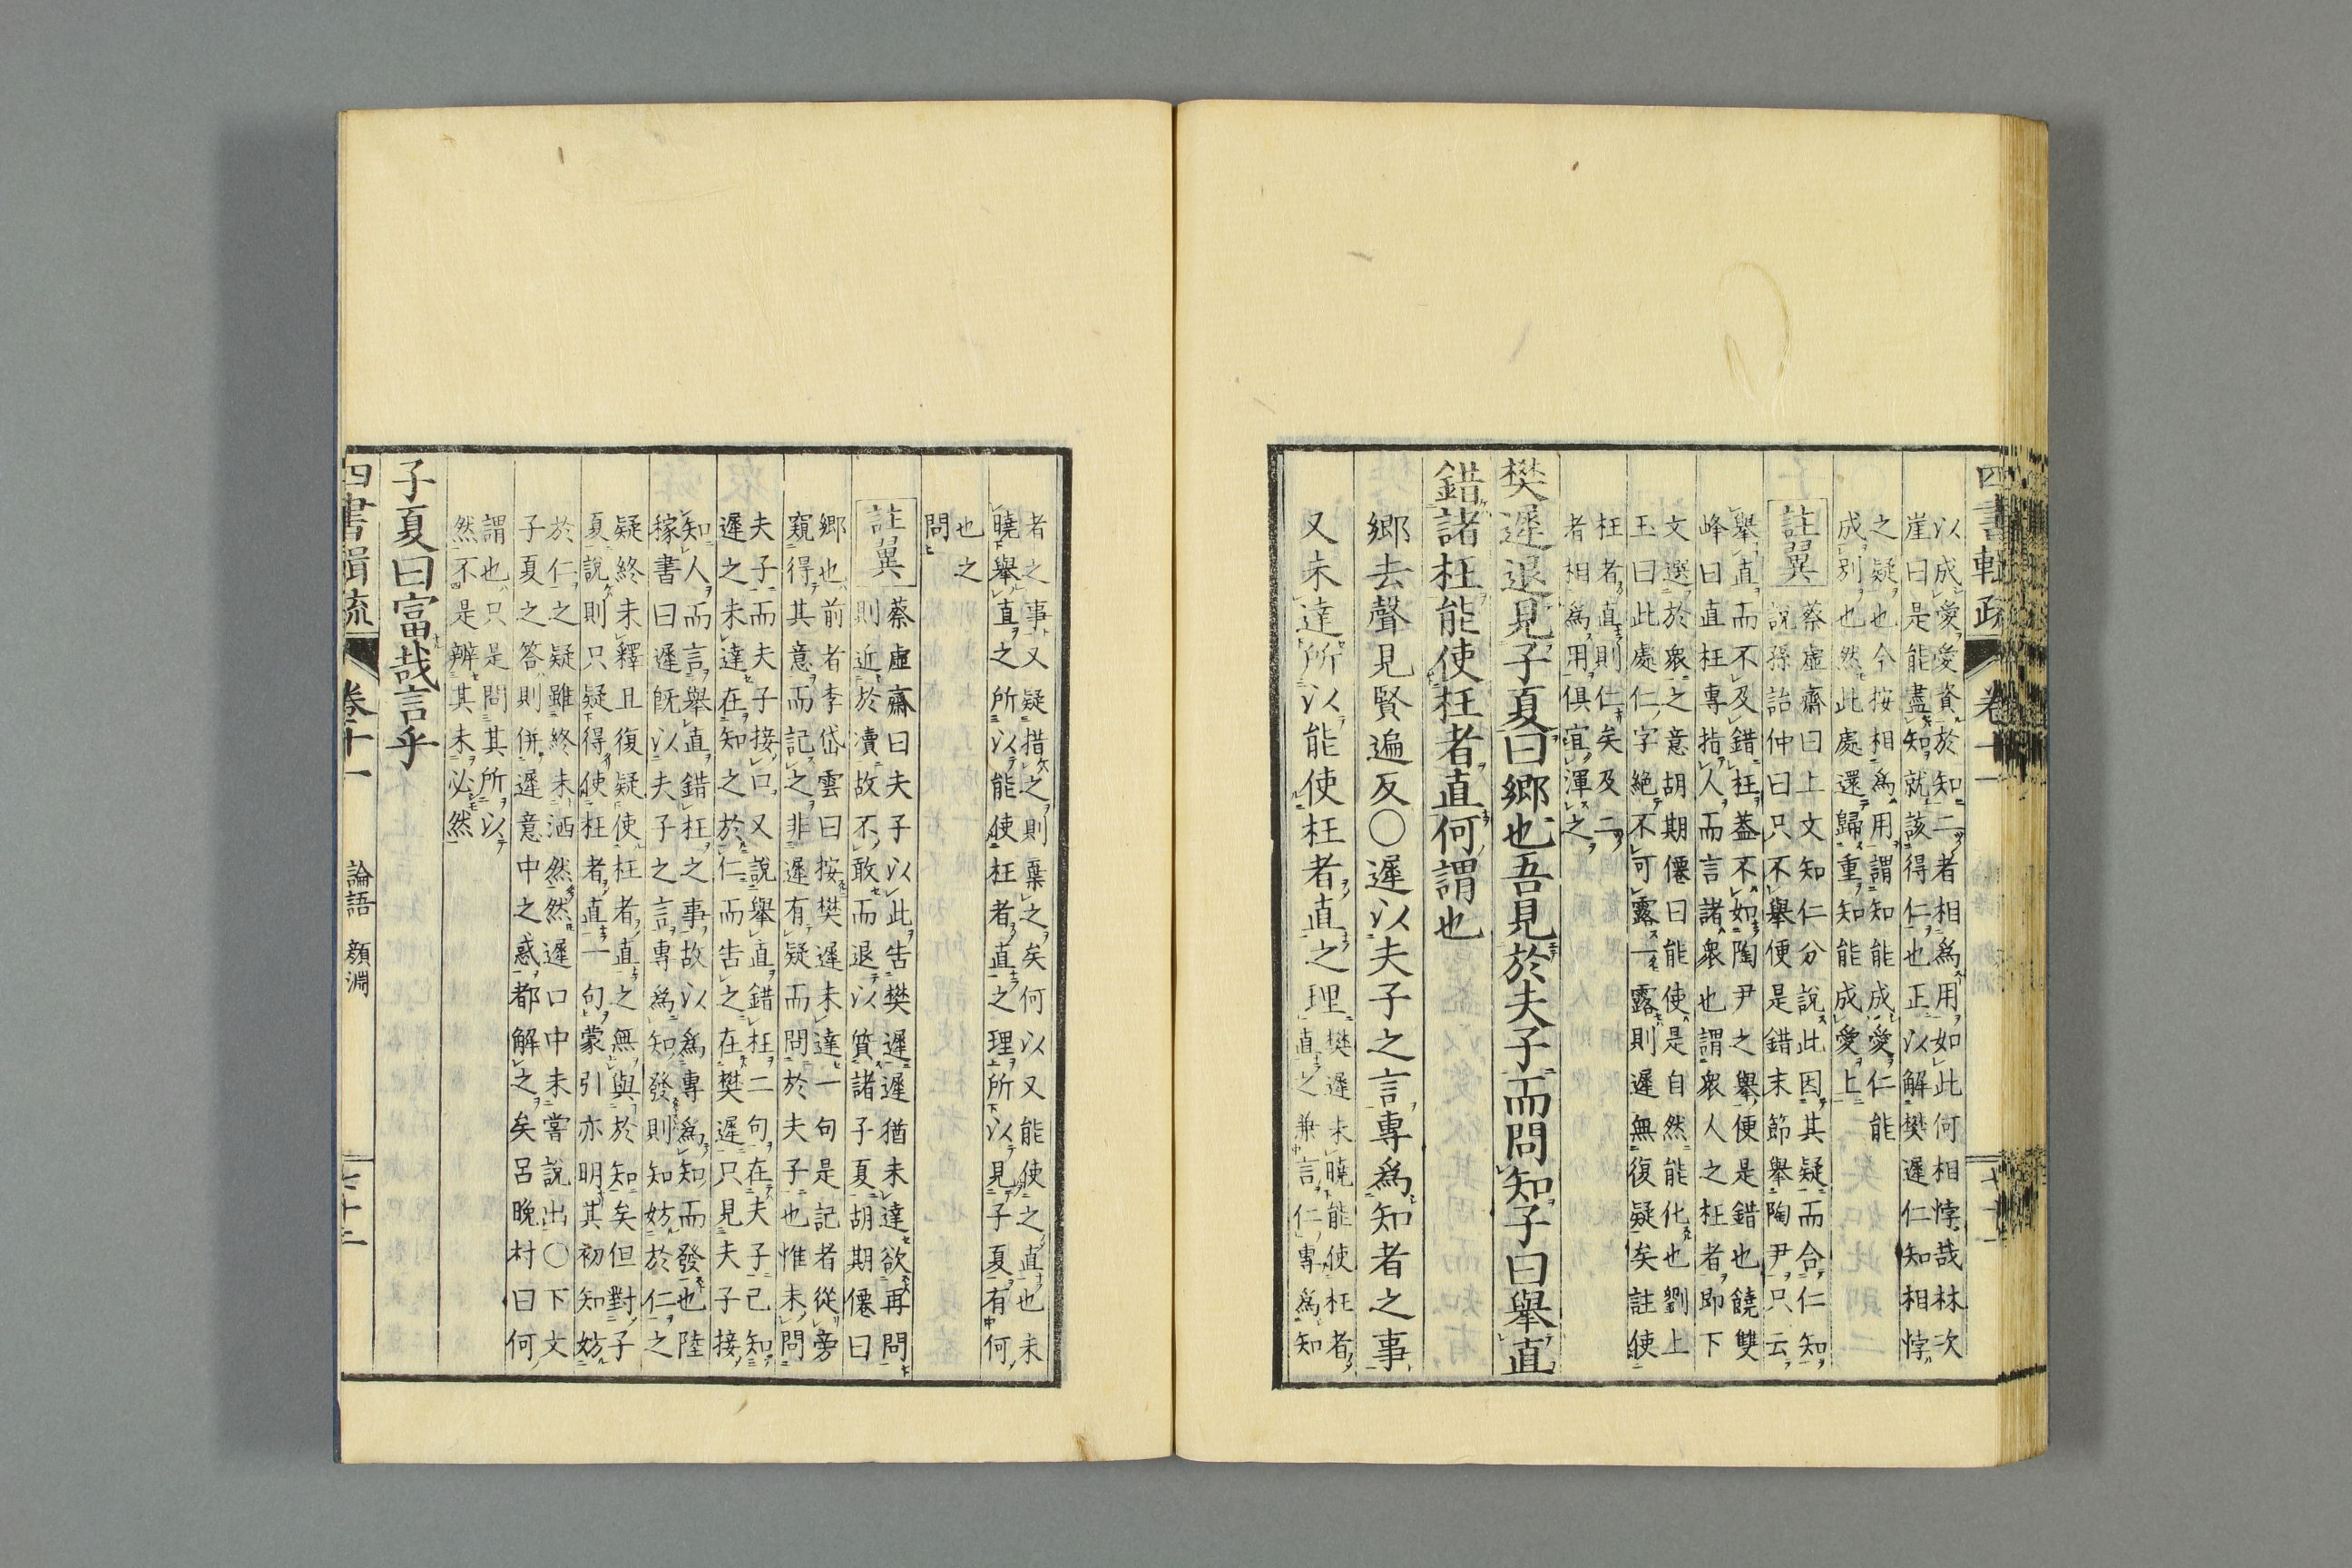 四書輯疏
卷十一
以成愛愛資於知二者相爲用如此何相悖哉林次
崖曰是能盡知就該得仁也正以解樊遲仁知相悖
之疑也今按相爲用謂知能成愛仁能
成別也然此處還歸重知能成愛上
註翼
蔡虛齋曰上文知仁分說此因其疑而合仁知
說孫詒仲曰只不舉便是錯末節舉陶尹只云
舉直而不及錯枉葢不如陶尹之舉便是錯也饒雙
峰曰直枉專指人而言諸衆也謂衆人之枉者即下
文選於衆之意胡期僊曰能使是自然能化也劉上
玉曰此處仁字絶不可露一露則遲無復疑矣註使
枉者直則仁矣及二
者相爲用俱宜渾之
樊遲退見子夏曰鄉也吾見於夫子而問知子曰舉直
錯諸枉能使枉者直何謂也
鄉去聲見賢遍反〇遲以夫子之言專爲知者之事
又未達所以能使枉者直之理
樊遲未曉能使枉者
直之兼言仁專爲知
者之事又疑措之則棄之矣何以又能使之直也未
曉舉直之所以能使枉者直之理所以見子夏有何
也之
問
註翼
蔡虛齋曰夫子以此告樊遲遲猶未達欲再問
則近於瀆故不敢而退以質諸子夏胡期僊曰
鄉也前者李岱雲曰按樊遲未達一句是記者從旁
窺得其意而記之非遲有疑而問於夫子也惟未問
夫子而夫子接口又說舉直錯枉二句在夫子已知
遲之未達在知之於仁而告之在樊遲只見夫子接
知人而言舉直錯枉之事故以爲專爲知而發也陸
稼書曰遲既以夫子之言專爲知發則知妨於仁之
疑終未釋且復疑使枉者直之無與於知矣但對子
夏說則只疑得使枉者直一句蒙引亦明其初知妨
於仁之疑雖終未洒然然遲口中未嘗說出〇下文
子夏之答則併遲意中之惑都解之矣呂晚村曰何
謂也只是問其所以
然不是辨其未必然
子夏曰富哉言乎
四書輯疏
卷十一
論語 顏淵
七十二